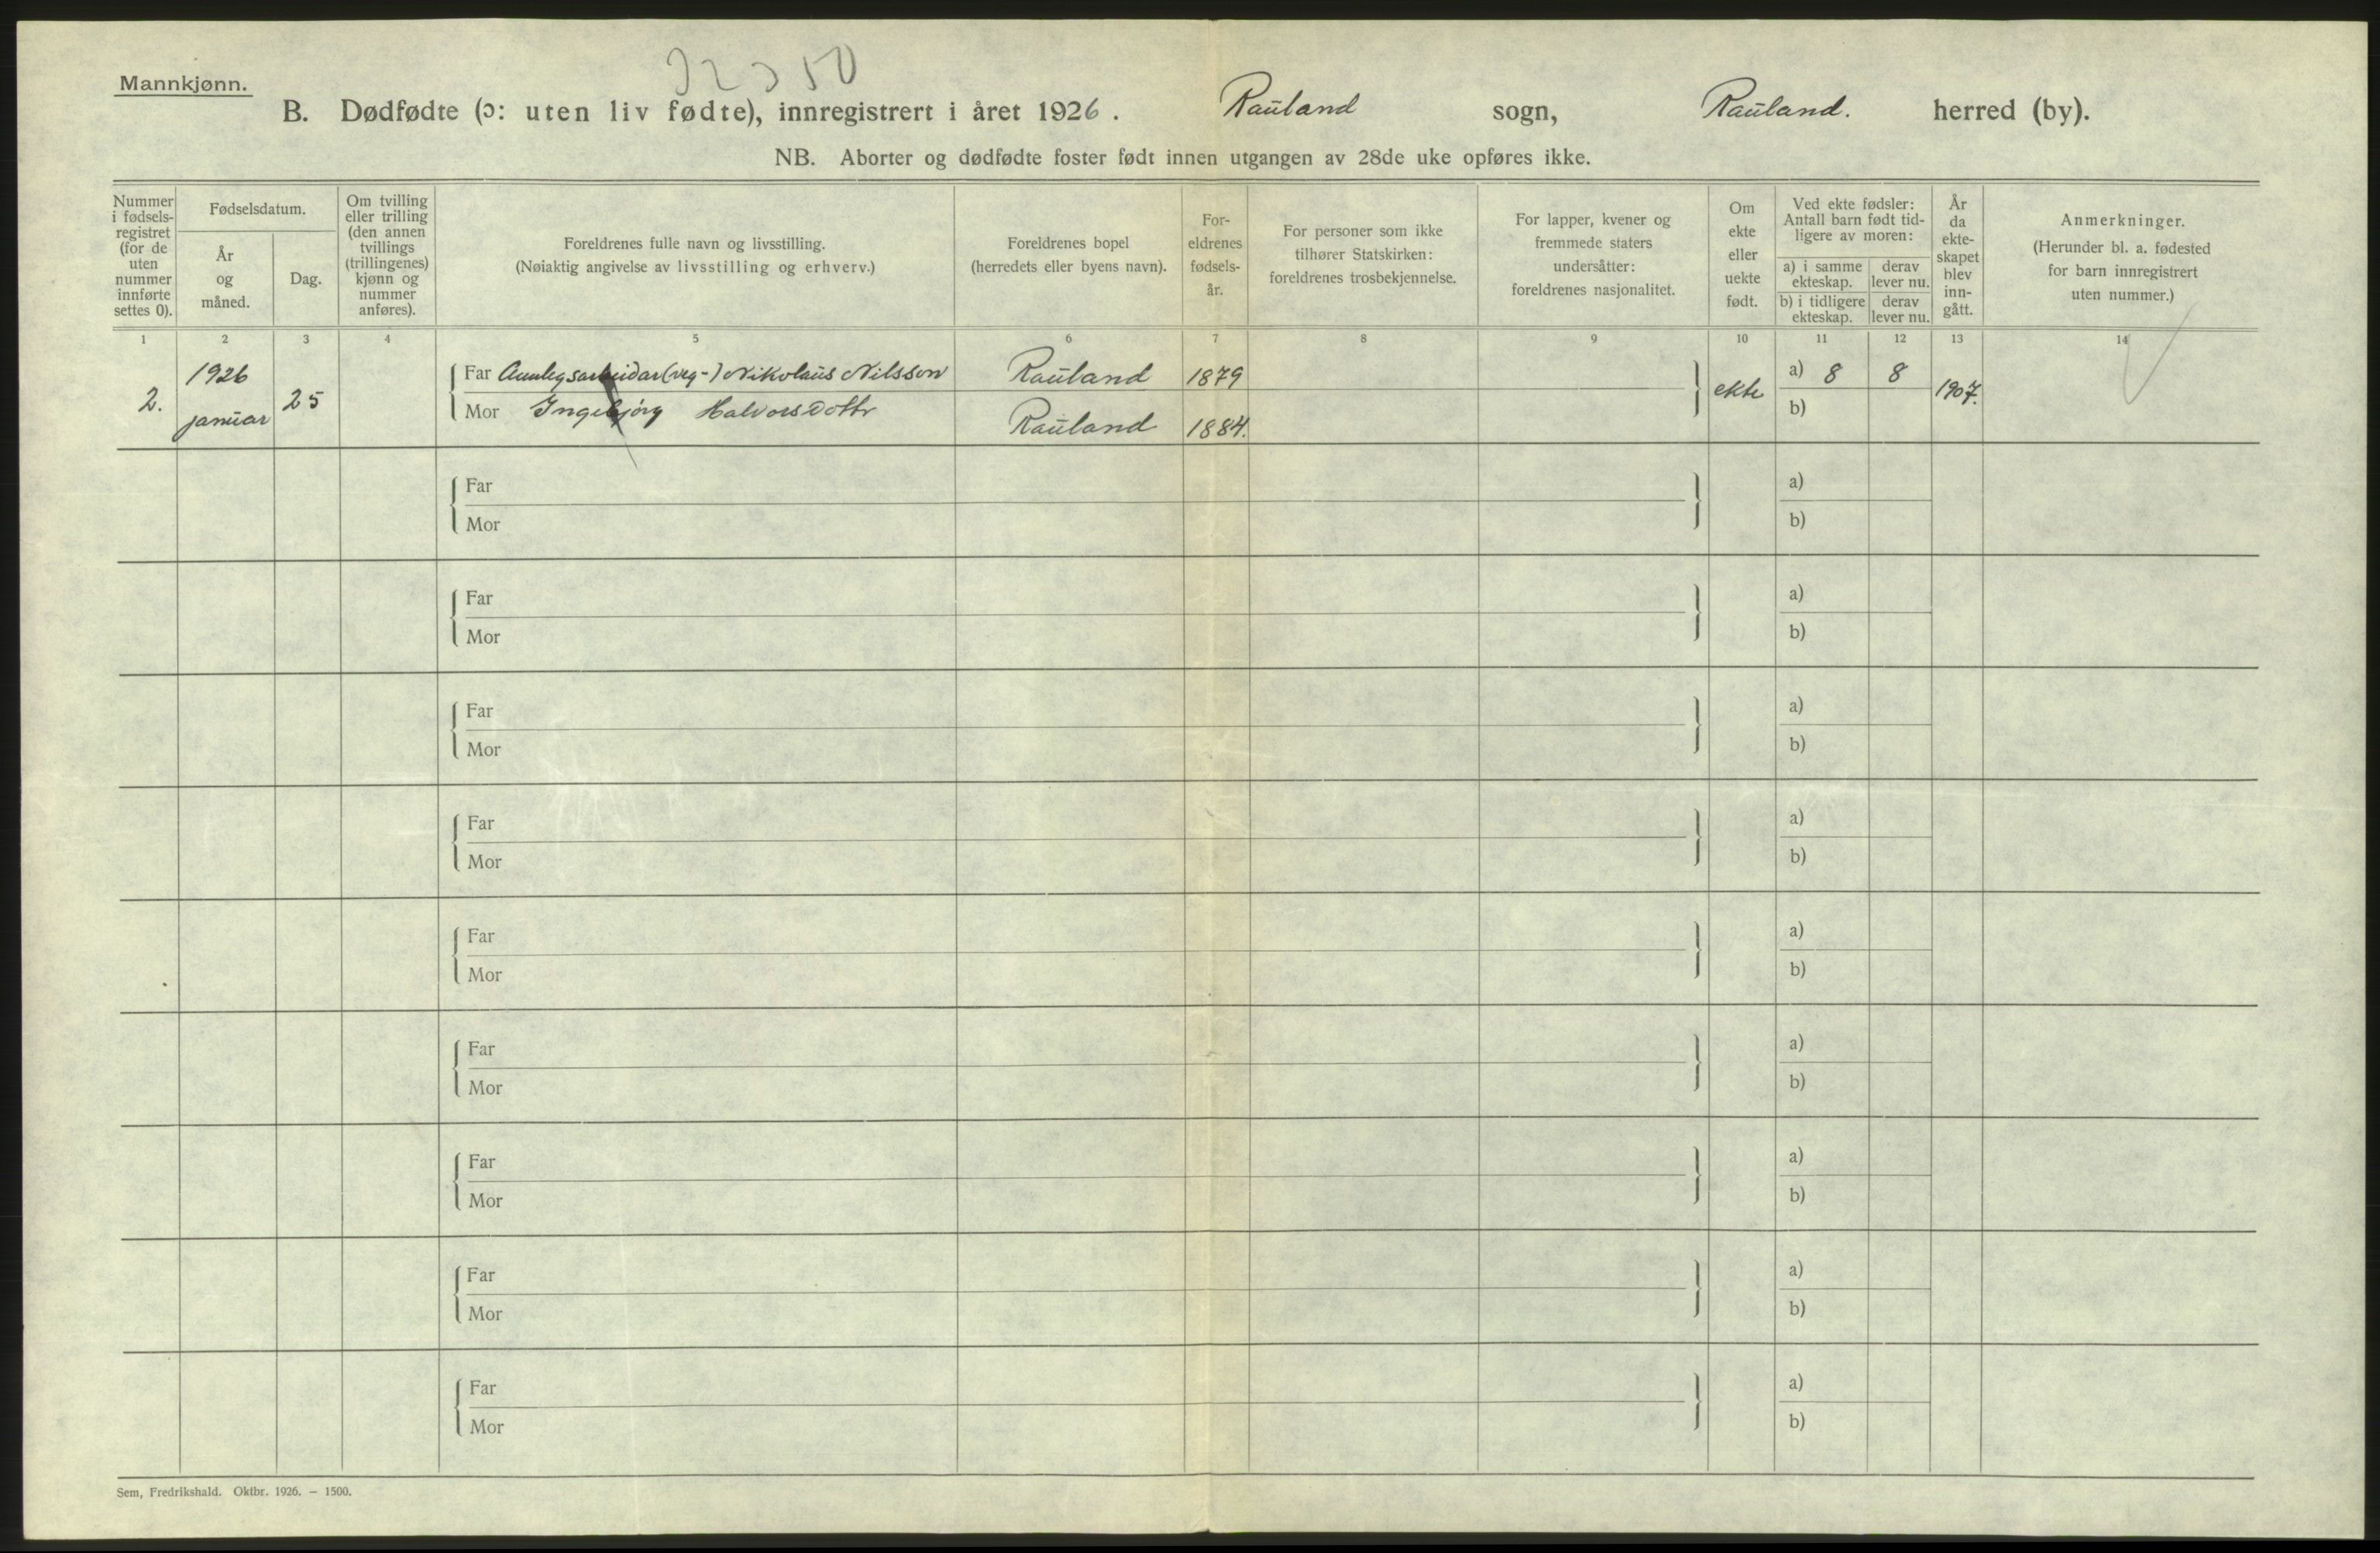 Mannkjønn.
B. Dødfødte (ɔ: uten liv fødte), innregistrert i året 1926. Rauland sogn, Rauland. herred (by).
NB. Aborter og dødfødte foster født innen utgangen av 28de uke opføres ikke.
Nummer i fødsels-registret (for de uten nummer innførte settes 0).
Fødselsdatum.
År og måned.
Dag.
Om tvilling eller trilling (den annen tvillings (trillingenes) kjønn og nummer anføres).
Foreldrenes fulle navn og livsstilling.
(Nøiaktig angivelse av livsstilling og erhverv.)
Foreldrenes bopel
(herredets eller byens navn).
For-eldrenes fødsels-år.
For personer som ikke tilhører Statskirken: foreldrenes trosbekjennelse.
For lapper, kvener og fremmede staters undersåtter: foreldrenes nasjonalitet.
Om ekte eller uekte født.
Ved ekte fødsler: Antall barn født tid-ligere av moren:
a) i samme ekteskap.
derav lever nu.
b) i tidligere ekteskap.
derav lever nu.
År da ekte-skapet blev inn-gått.
Anmerkninger.
(Herunder bl. a. fødested for barn innregistrert uten nummer.)
1 2 3 4 5 6 7 8 9 10 11 12 13 14
2. 1926 januar 25
Far Annlegsarbeidar (veg-) Nikolaus Nilsson Rauland 1879
Mor Ingebjörg Halvorsdottr Rauland 1884.
ekte a) 8 8 1907.
b)
Far a)
Mor b)
Far a)
Mor b)
Far a)
Mor b)
Far a)
Mor b)
Far a)
Mor b)
Far a)
Mor b)
Far a)
Mor b)
Far a)
Mor b)
Far a)
Mor b)
Sem, Fredrikshald. Oktbr. 1926. — 1500.